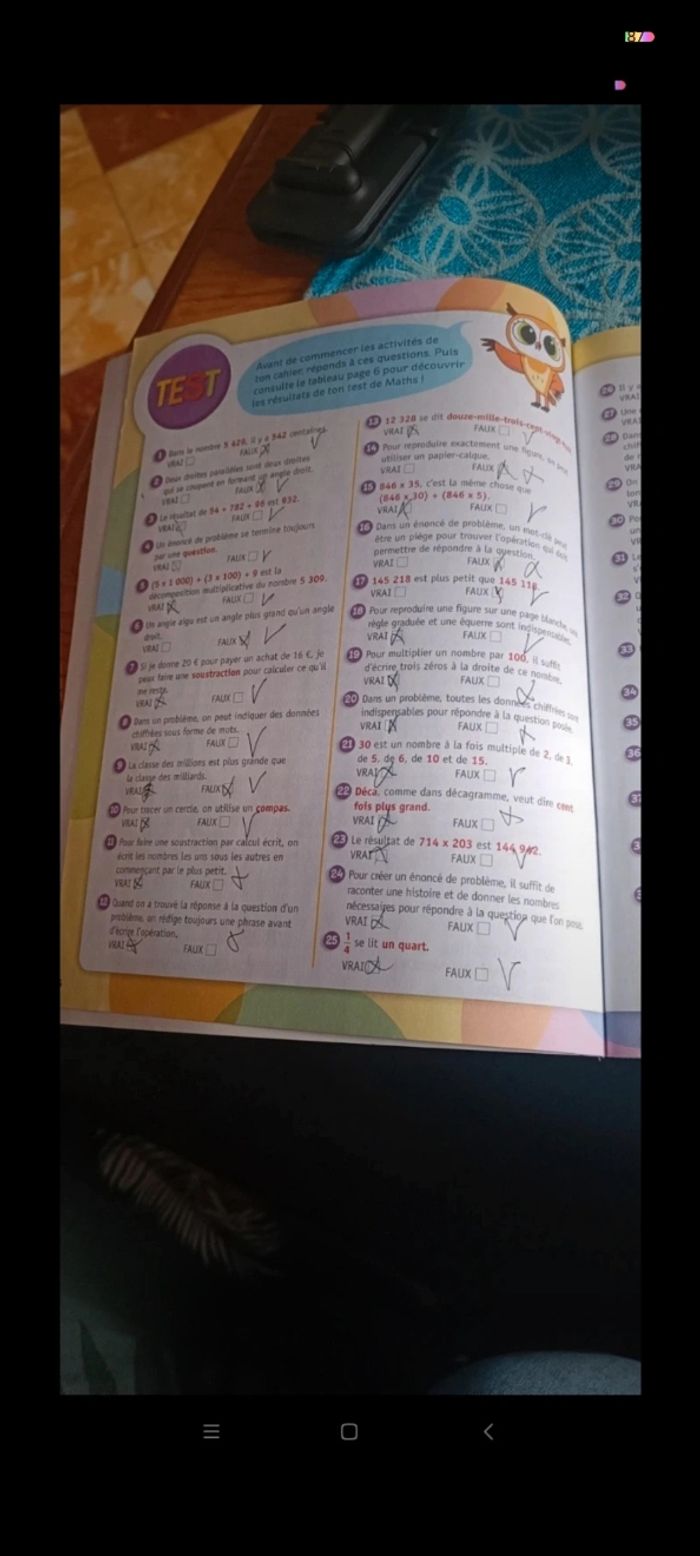 TEST
Avant de commencer les activités de
ton cahier, réponds à ces questions. Puis
consulte le tableau page 6 pour découvrir
les résultats de ton test de Maths !
1 Dans le nombre 5 429, il y a 542 centaines.
VRAI FAUX
2 Deux droites parallèles sont deux droites
qui se coupent en formant un angle droit.
VRAI FAUX
3 Le résultat de 54 + 782 + 96 est 932.
VRAI FAUX
4 Un énoncé de problème se termine toujours
par une question.
VRAI FAUX
5 (5 x 1 000) + (3 x 100) + 9 est la
décomposition multiplicative du nombre 5 309.
VRAI FAUX
6 Un angle aigu est un angle plus grand qu'un angle
droit.
VRAI FAUX
7 Si je donne 20 € pour payer un achat de 16 €, je
peux faire une soustraction pour calculer ce qu'il
me reste.
VRAI FAUX
8 Dans un problème, on peut indiquer des données
chiffrées sous forme de mots.
VRAI FAUX
9 La classe des millions est plus grande que
la classe des milliards.
VRAI FAUX
10 Pour tracer un cercle, on utilise un compas.
VRAI FAUX
11 Pour faire une soustraction par calcul écrit, on
écrit les nombres les uns sous les autres en
commençant par le plus petit.
VRAI FAUX
12 Quand on a trouvé la réponse à la question d'un
problème, on rédige toujours une phrase avant
d'écrire l'opération.
VRAI FAUX
13 12 328 se dit douze-mille-trois-cent-vingt-
VRAI FAUX
14 Pour reproduire exactement une figure, on peut
utiliser un papier-calque.
VRAI FAUX
15 846 x 35, c'est la même chose que
(846 x 30) + (846 x 5).
VRAI FAUX
16 Dans un énoncé de problème, un mot-clé peut
être un piège pour trouver l'opération qui doit
permettre de répondre à la question.
VRAI FAUX
17 145 218 est plus petit que 145 118.
VRAI FAUX
18 Pour reproduire une figure sur une page blanche, une
règle graduée et une équerre sont indispensables.
VRAI FAUX
19 Pour multiplier un nombre par 100, il suffit
d'écrire trois zéros à la droite de ce nombre.
VRAI FAUX
20 Dans un problème, toutes les données chiffrées sont
indispensables pour répondre à la question posée.
VRAI FAUX
21 30 est un nombre à la fois multiple de 2, de 3,
de 5, de 6, de 10 et de 15.
VRAI FAUX
22 Déca, comme dans décagramme, veut dire cent
fois plus grand.
VRAI FAUX
23 Le résultat de 714 x 203 est 144 942.
VRAI FAUX
24 Pour créer un énoncé de problème, il suffit de
raconter une histoire et de donner les nombres
nécessaires pour répondre à la question que l'on pose.
VRAI FAUX
25 1/4 se lit un quart.
VRAI FAUX
26 Il y
VRAI
27 Une
VRAI
28 Dans
29 On
30
31
32
33
34
35
36